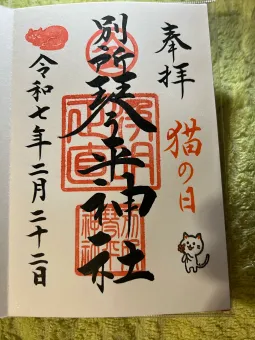 奉拝
猫の日
別所琴平神社
令和七年二月二十二日